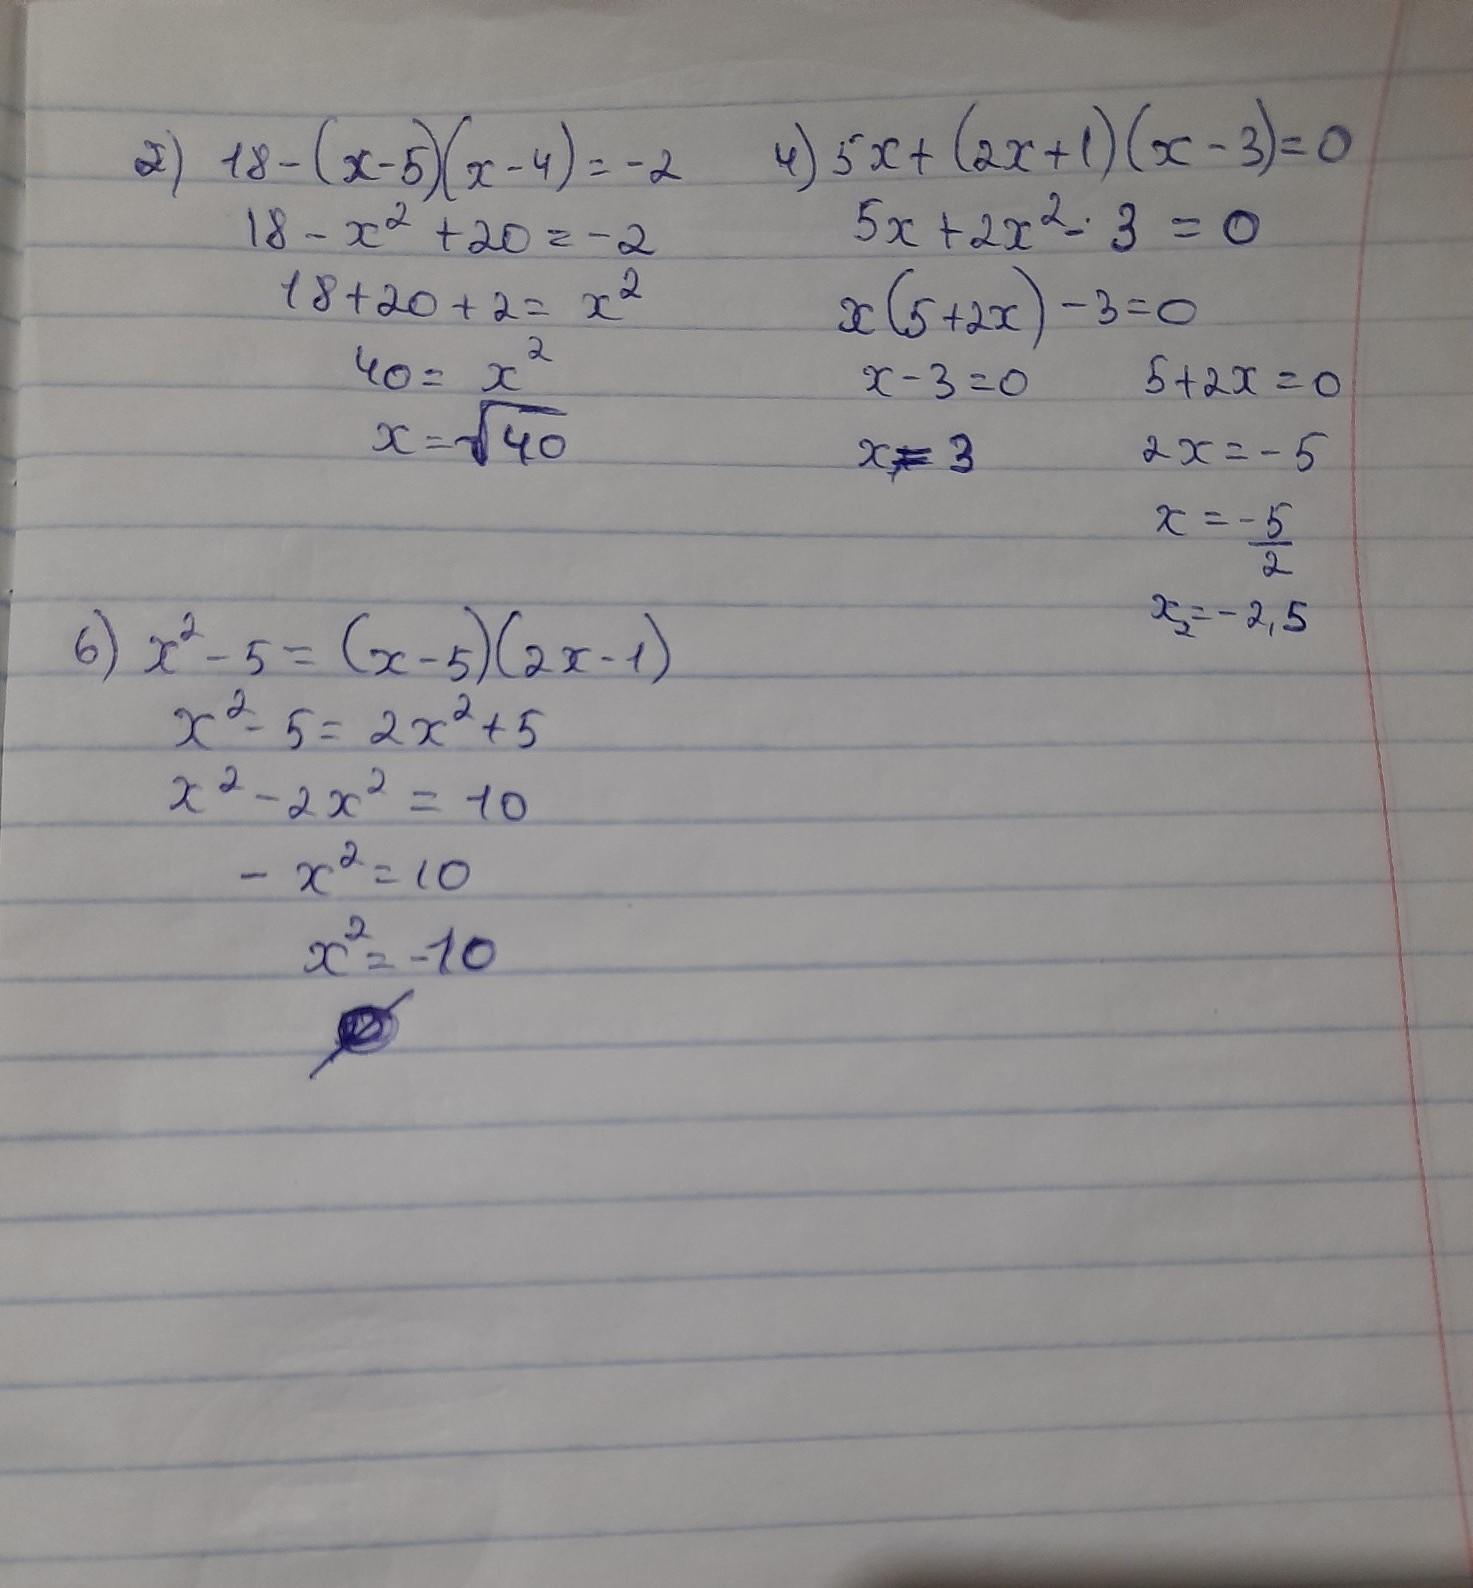 2) 18-(x-5)(x-4)=-2
18-x²+20=-2
18+20+2=x²
40=x²
x=√40
4) 5x+(2x+1)(x-3)=0
5x+2x²-3=0
x(5+2x)-3=0
x-3=0 5+2x=0
x=3 2x=-5
x=-5/2
x₂=-2,5
6) x²-5=(x-5)(2x-1)
x²-5=2x²+5
x²-2x²=10
-x²=10
x²=-10